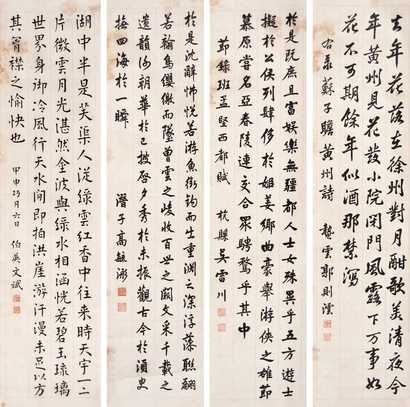 去年花落在徐州對月酣歌美清夜今
年黃州見花發小院閉門風露下萬事如
花不可期餘年似酒那禁瀉
蘇子瞻黃州詩 蟄雲郭則澐
於是既庶且富娛樂無疆都人士女殊異乎五方遊士
擬於公侯列肆侈於姬姜鄉曲豪舉游俠之雄節
慕原嘗名亞春陵連交合眾騁騖乎其中
節錄班孟堅西都賦 杭縣吳雷川
於是沈辭怫悅若游魚銜鈎而出重淵之深浮藻聯翩
若翰鳥纓繳而墜曾雲之峻收百世之闕文采千載之
遺韻謝朝華於已披啓夕秀於未振觀古今於須臾
撫四海於一瞬 潛子高毓浵
湖中半是芙蕖人從綠雲紅香中往來時天宇一二
片微雲月光湛然金波與綠水相涵恍若碧玉琉璃
世界身御冷風行天水間即拍洪崖游汗漫未足以方
其胷襟之愉快也 甲申 月六日 伯英文斌